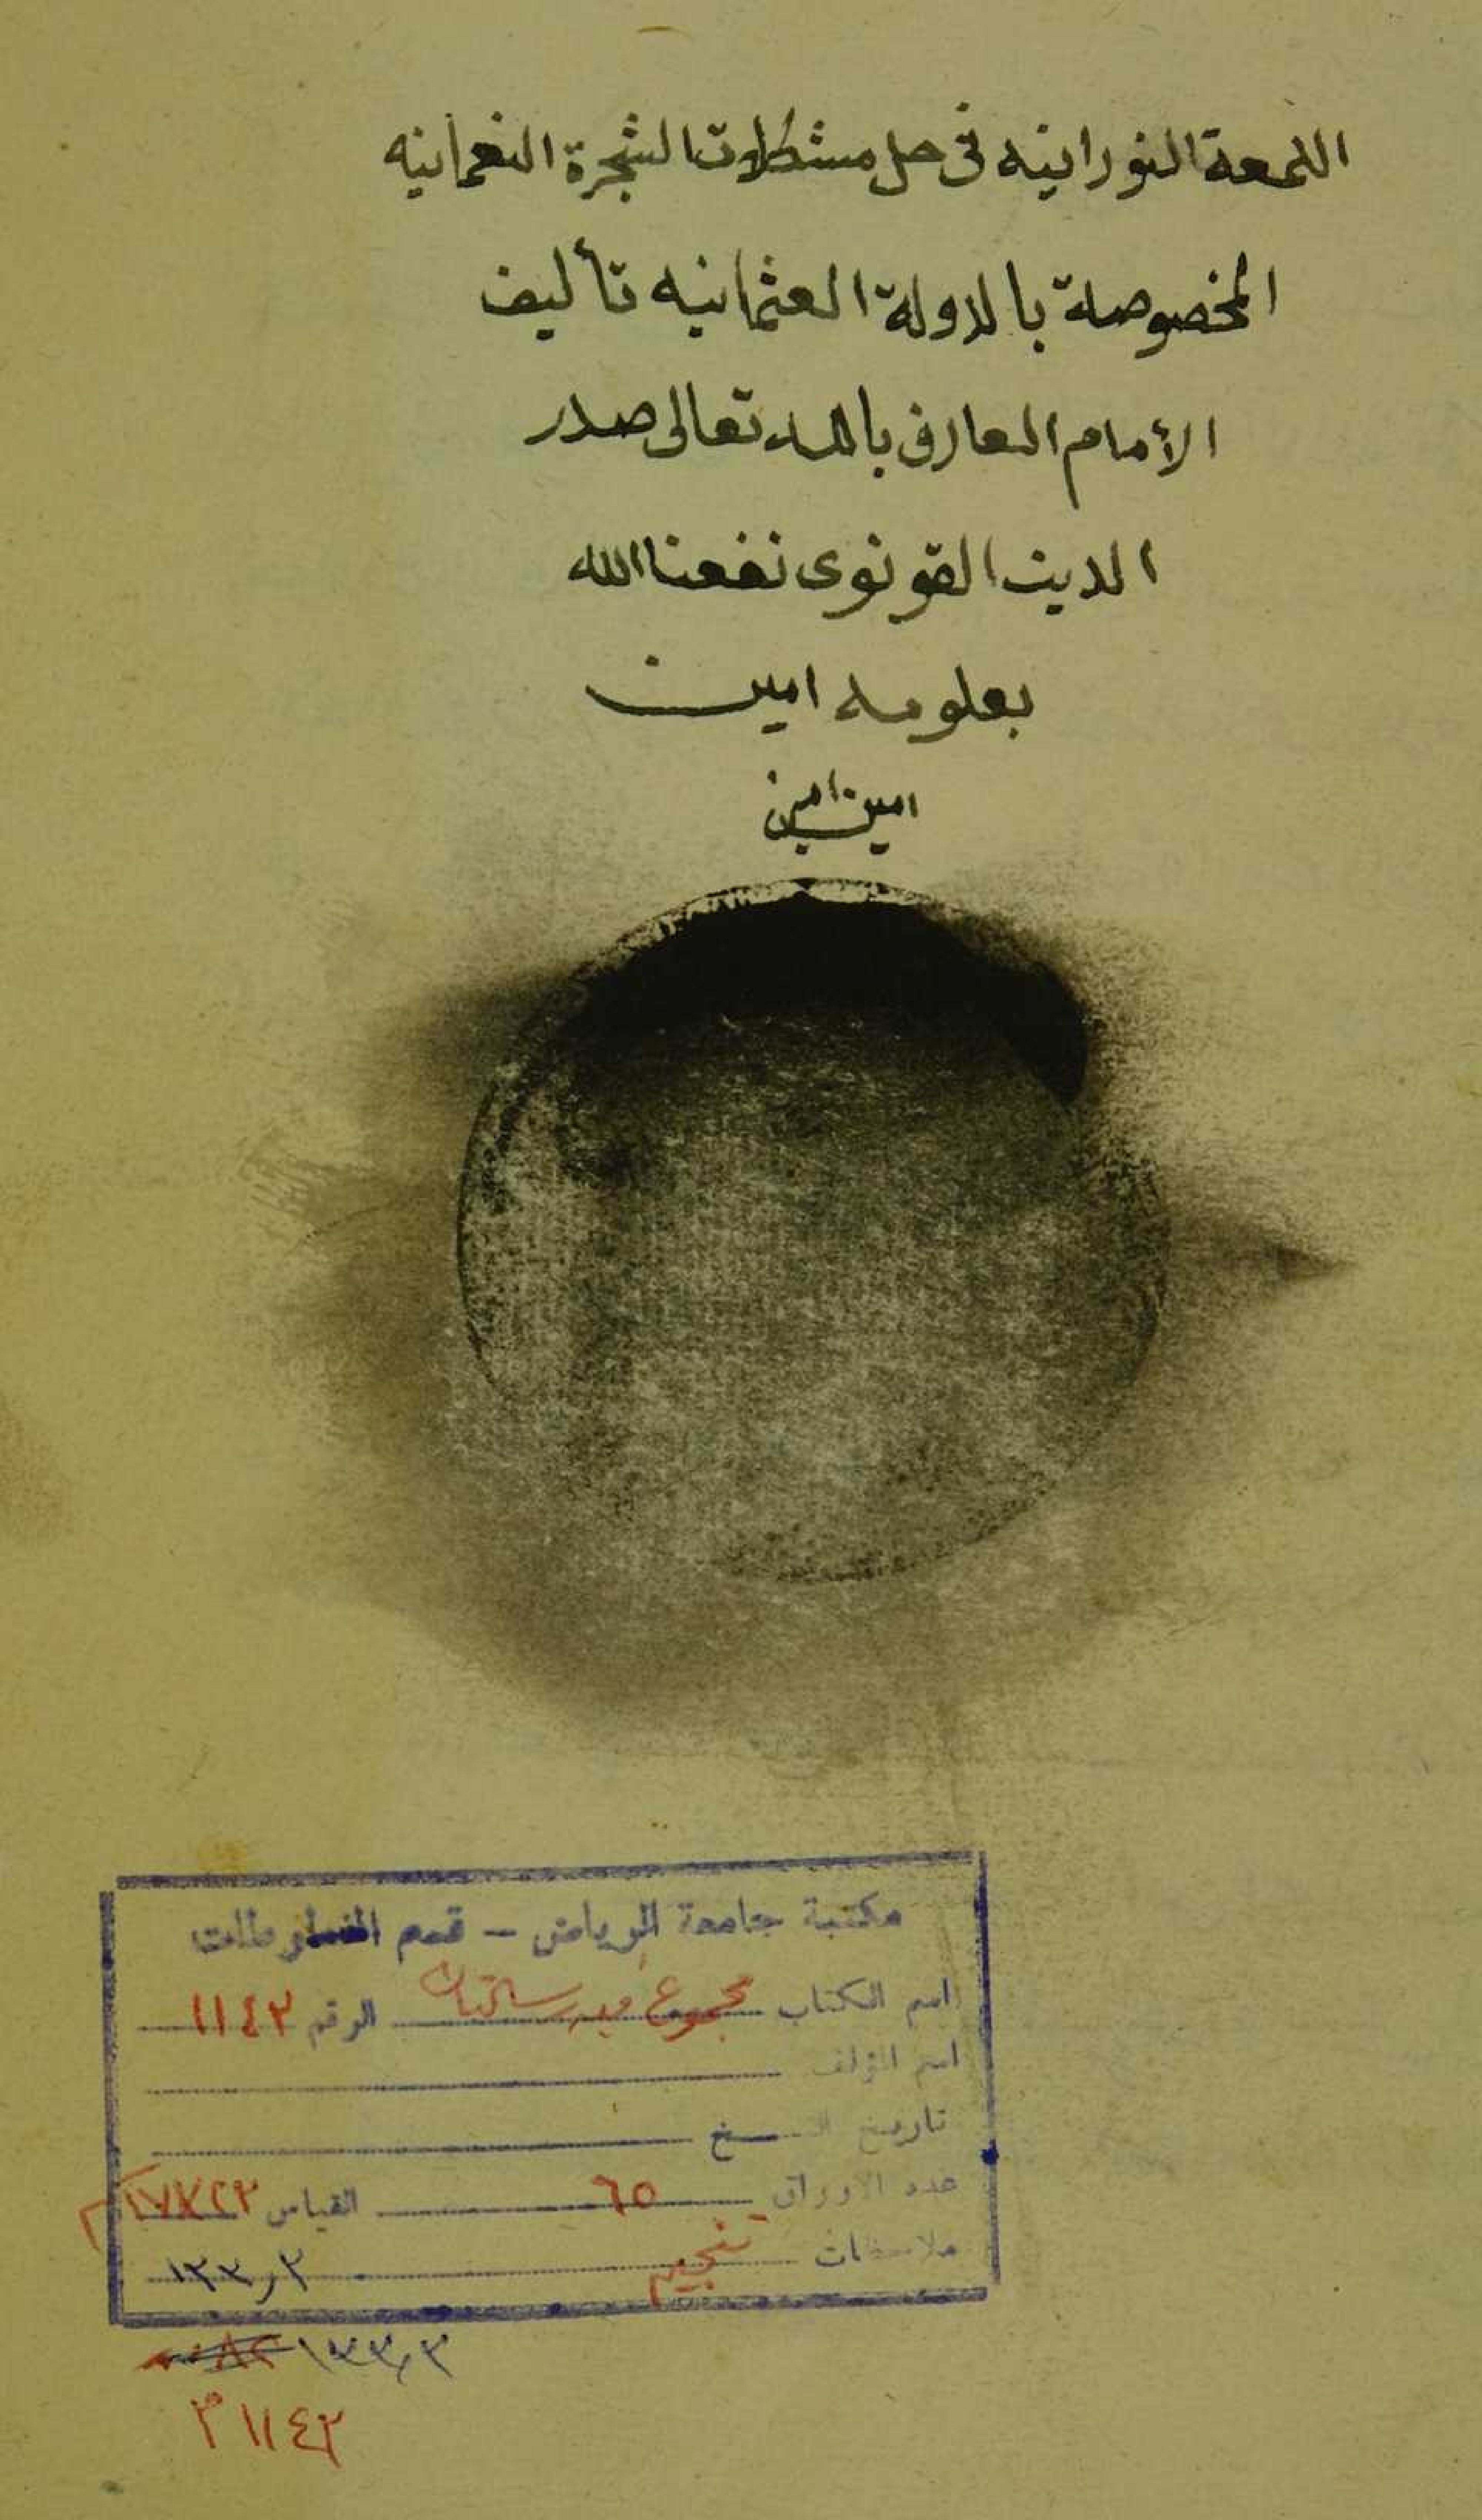 اللمعة النورانيه فى حل مشكلات الشجرة النعمانيه
المخصوصة بالدولة العثمانيه تأليف
الأمام العارف بالله تعالى صدر
الدين القونوى نفعنا الله
بعلومه امين
امين امين
مكتبة جامعة الرياض – قسم المخطوطات
اسم الكتاب مجموع فيه رسالتان الرقم ١١٤٣
اسم المؤلف
تاريخ النسخ
عدد الاوراق ٦٥ القياس ١٧x٢٣
ملاحظات تنجيم ١٣٣٫٣
١٣٣٫٣
١١٤٣ م